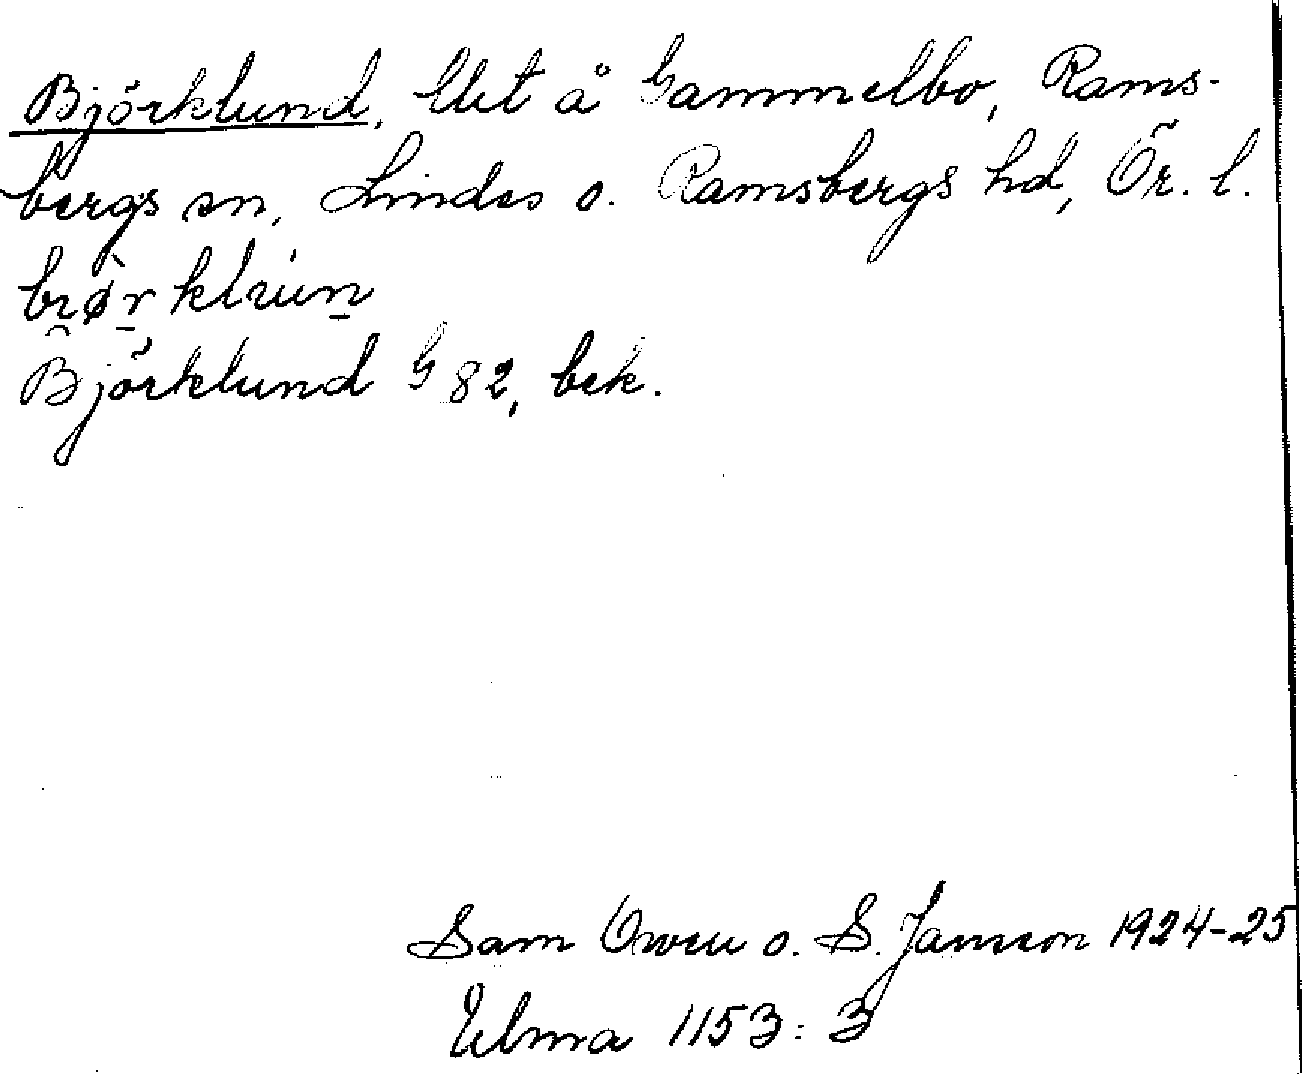 Björklund, lht å Gammelbo, Rams-
bergs sn, Lindes o. Ramsbergs hd, Ör. l.
Björklund G 82, bek.
Sam Owen o. S. Janson 1924-25
Ulma 1153:3